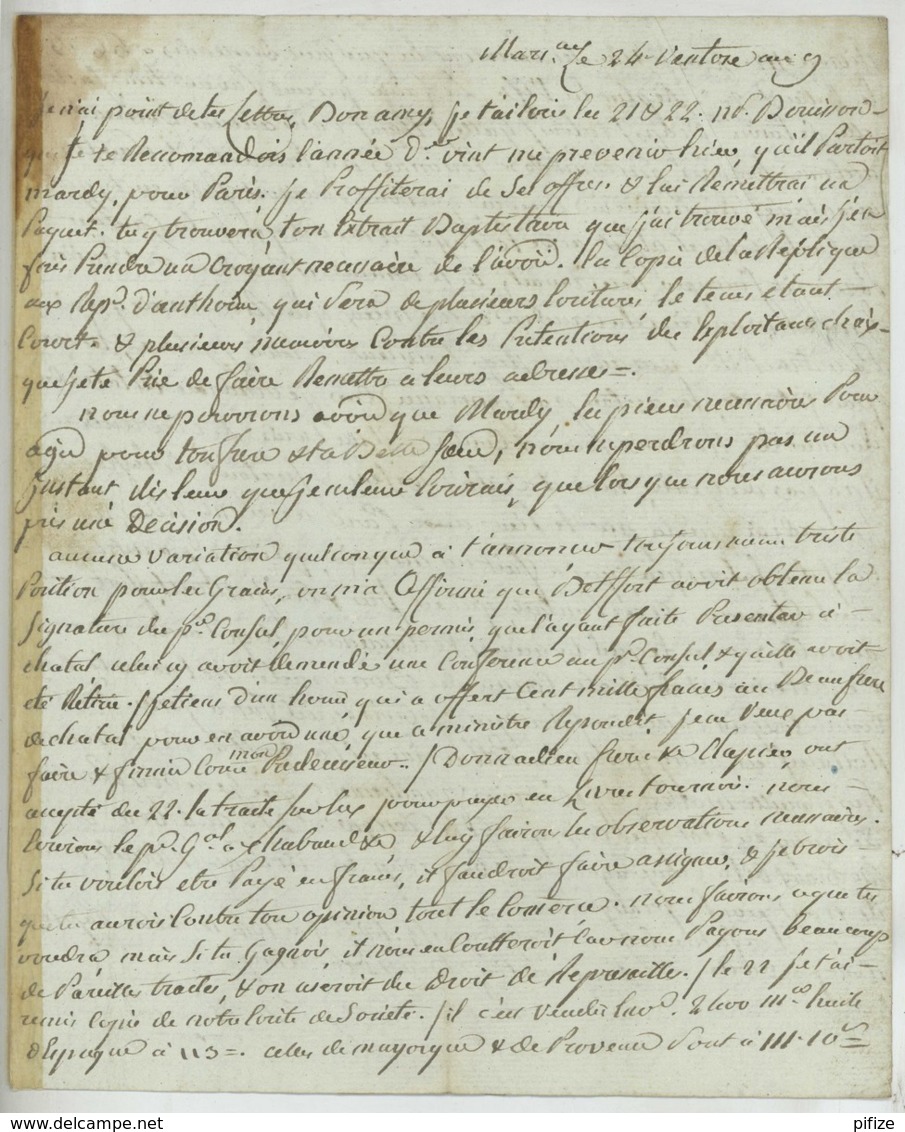 Mars.^lle Le 24 Ventose an 9
je n'ai point de tes Lettres, Bon amy, je t'ai écris les 21 & 22. Bouisson
que je te Reccomandois l'année d.re vint me prevenir hier, qu'il Partoit
mardy, pour Paris. je Proffiterai de Ses offres & lui Remettrai un
Paquet. tu y trouvera, ton Extrait Baptistaire que j'ai trouvé mais j'en
fais Prendre un Croyant necessaire de l'avoir. la Copie de la Réplique
aux Rep.s d'anthoine qui Sera de plusieurs Ecritures le tems etant
Court. & plusieurs memoires Contre les Pretentions des Exploitans
que je te Prie de faire Remettre a leurs adresses =.
nous ne pourrons avoir que Mardy les pieces necessaires Pour
agir pour ton frere & ta Belle Soeur, nous ne perdrons pas un
Instant dis leur que je ne leur Ecrirais, que lorsque nous aurons
pris une Decision.
aucune variation quelconque a t'annoncer toujours meme triste
Position pour les Grains, on m'a Affirmé que Belffort avoit obtenu la
Signature du p.er Consul, pour un permis, que l'ayant faite Presenter à
chatal celui cy avoit demandé une Conference au p.er Consul & qu'elle avoit
eté Rétirée. / je tiens d'un homme qui a offert Cent mille francs au Beau frere
de chatal pour en avoir une, que ce ministre Repondit je ne Veux pas
faire & finir Comme mon Predecesseur. / Donnadieu frere & Clapier ont
accepté du 22. la traite sur eux pour payer en Livres tournois. nous
Ecrirons le p.er G.al a Chabaud & Ce & luy fairons les observations necessaires.
Si tu voulois etre Payé en francs, it faudroit faire assigner, & je crois
que tu aurois Contre ton opinion tout le Comerce. nous fairons ce que tu
voudra mais Si tu Gagnois, il nous en Coutteroit Car nous Payons beaucoup
de Pareilles traites, & on useroit du Droit de Represaille. / le 22 je t'ai
remis Copie de notre Ecrite de Société. / il c'est Vendu 2400 m.es huile
d'Espagne à 113 =. celles de mayorque & de Provence Sont à 111.10 =
pifize